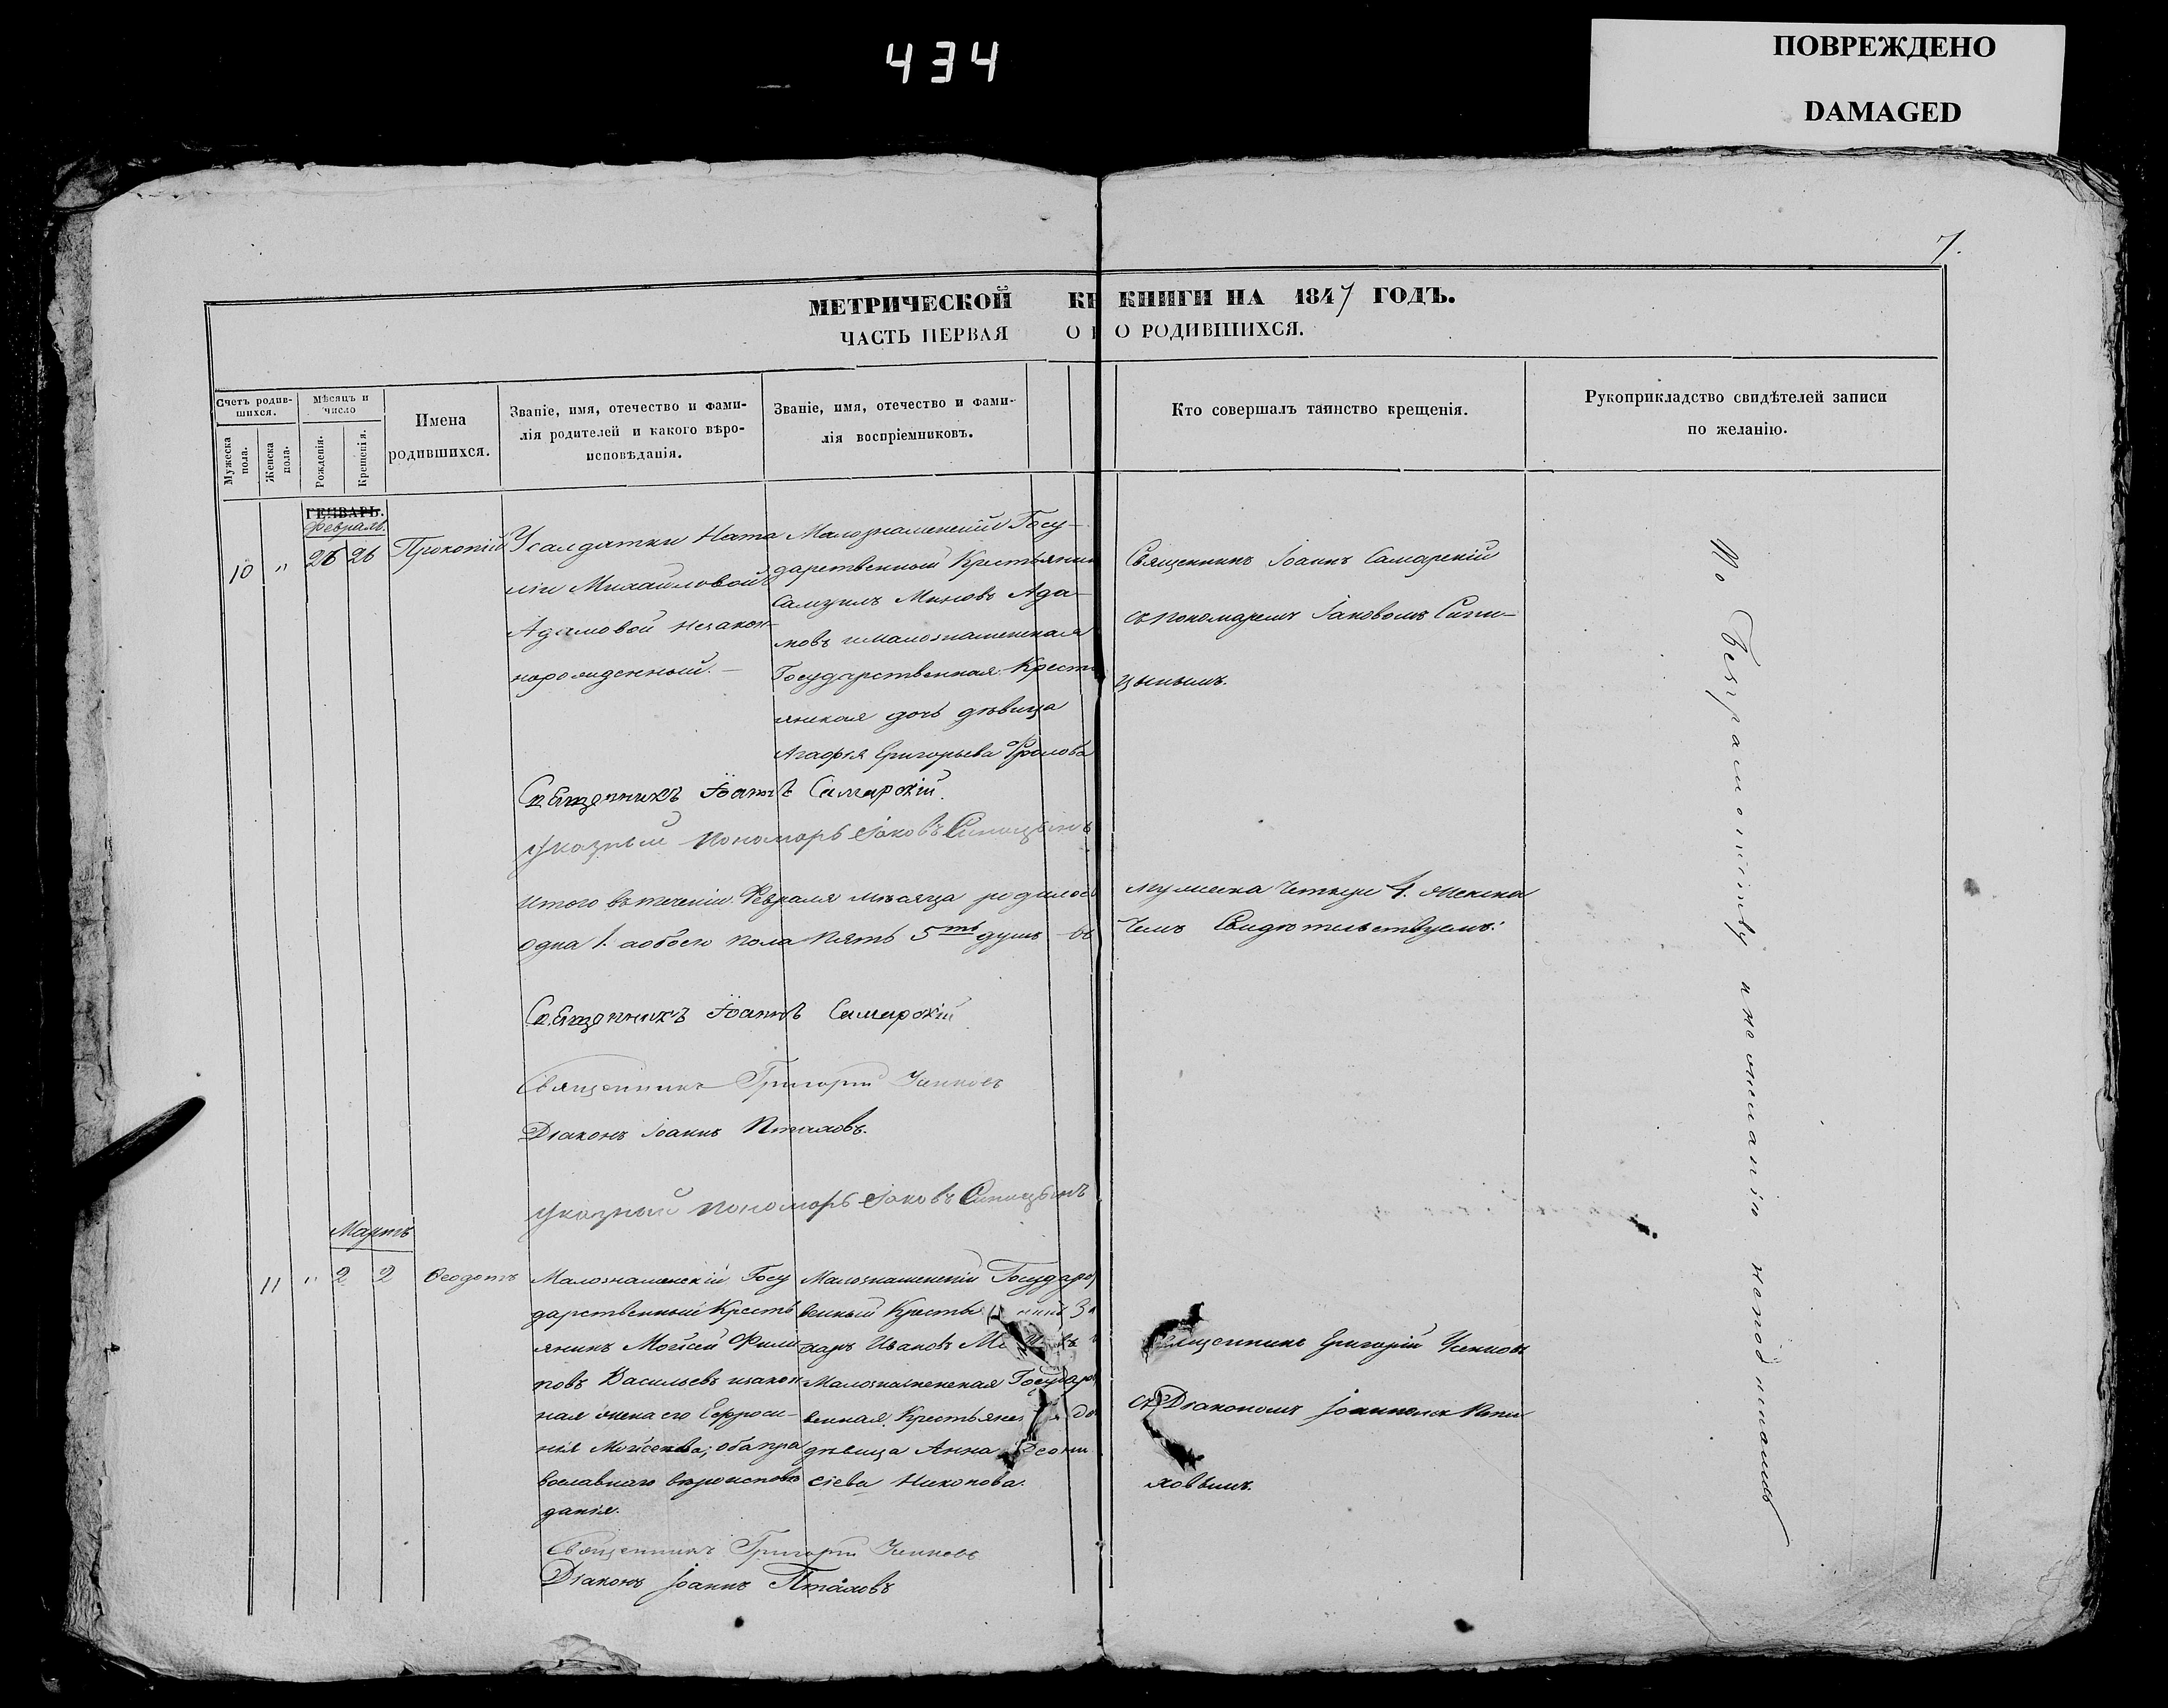 434
ПОВРЕЖДЕНО
DAMAGED
7.
МЕТРИЧЕСКОЙ КН КНИГИ НА 1847 ГОДЪ.
ЧАСТЬ ПЕРВАЯ О О РОДИВШИХСЯ.
Счетъ родив-
шихся.
Мужеска пола.
Женска пола.
Мѣсяцъ и
число
Рожденія.
Крещенія.
Имена
родившихся.
Званіе, имя, отечество и фами-
лія родителей и какого вѣро-
исповѣданія.
Званіе, имя, отечество и фами-
лія воспріемниковъ.
Кто совершалъ таинство крещенія.
Рукоприкладство свидѣтелей записи
по желанію.
ГЕНВАРЬ.
Февраль.
10 " 26 26 Прокопій
Усалдатки Ната
ліи Михайловой
Адамовой незакон-
норожденный.—
Малознаменскій Госу-
дарственный Крестьянин
Самуилъ Миновъ Ада-
мовъ и малознаменская
Государственная Кресть
янская дочь дѣвица
Агафія Григорьева Фролова
Священникъ Іоаннъ Самарскій
съ пономаремъ Іаковомъ Сини-
цынымъ.
Священникъ Іоаннъ Самарскій.
Указный пономарь Іаковъ Синицынъ
Итого въ теченіи Февраля мѣсяца родилось мужеска четыре 4. женска
одна 1. а обоего пола пять 5ть душъ въ чемъ Свидѣтельствуемъ:
Священникъ Іоаннъ Самарскій
Священникъ Григорій
Діаконъ Іоаннъ Птаховъ.
Указный пономарь Іаковъ Синицынъ
Мартъ
11 " 2 2 Ѳеодотъ
Малознаменскій Госу
дарственный Кресть
янинъ Моѵсей Фили
повъ Васильевъ изакон
ная жена его Евфроси-
нія Моѵсеева; оба пра
вославнаго вѣроисповѣ
данія.
Малознаменскій Государс
венный Кресть
харъ Ивановъ
Малознаменская Государс
венная
дѣвица Анна Діони
сіева Никонова.
Священникъ Григорій
съ Діакономъ Іоанномъ Пта-
ховымъ.
Священникъ Григорій
Діаконъ Іоаннъ Птаховъ
По безграмотству и нежеланію неподписались